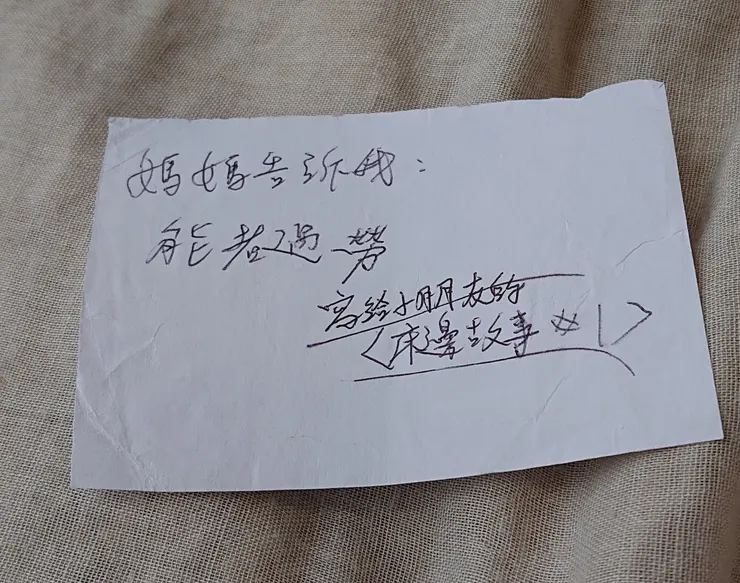 媽媽告訴我：
能者過勞
寫給小朋友的
＜床邊故事 #1＞